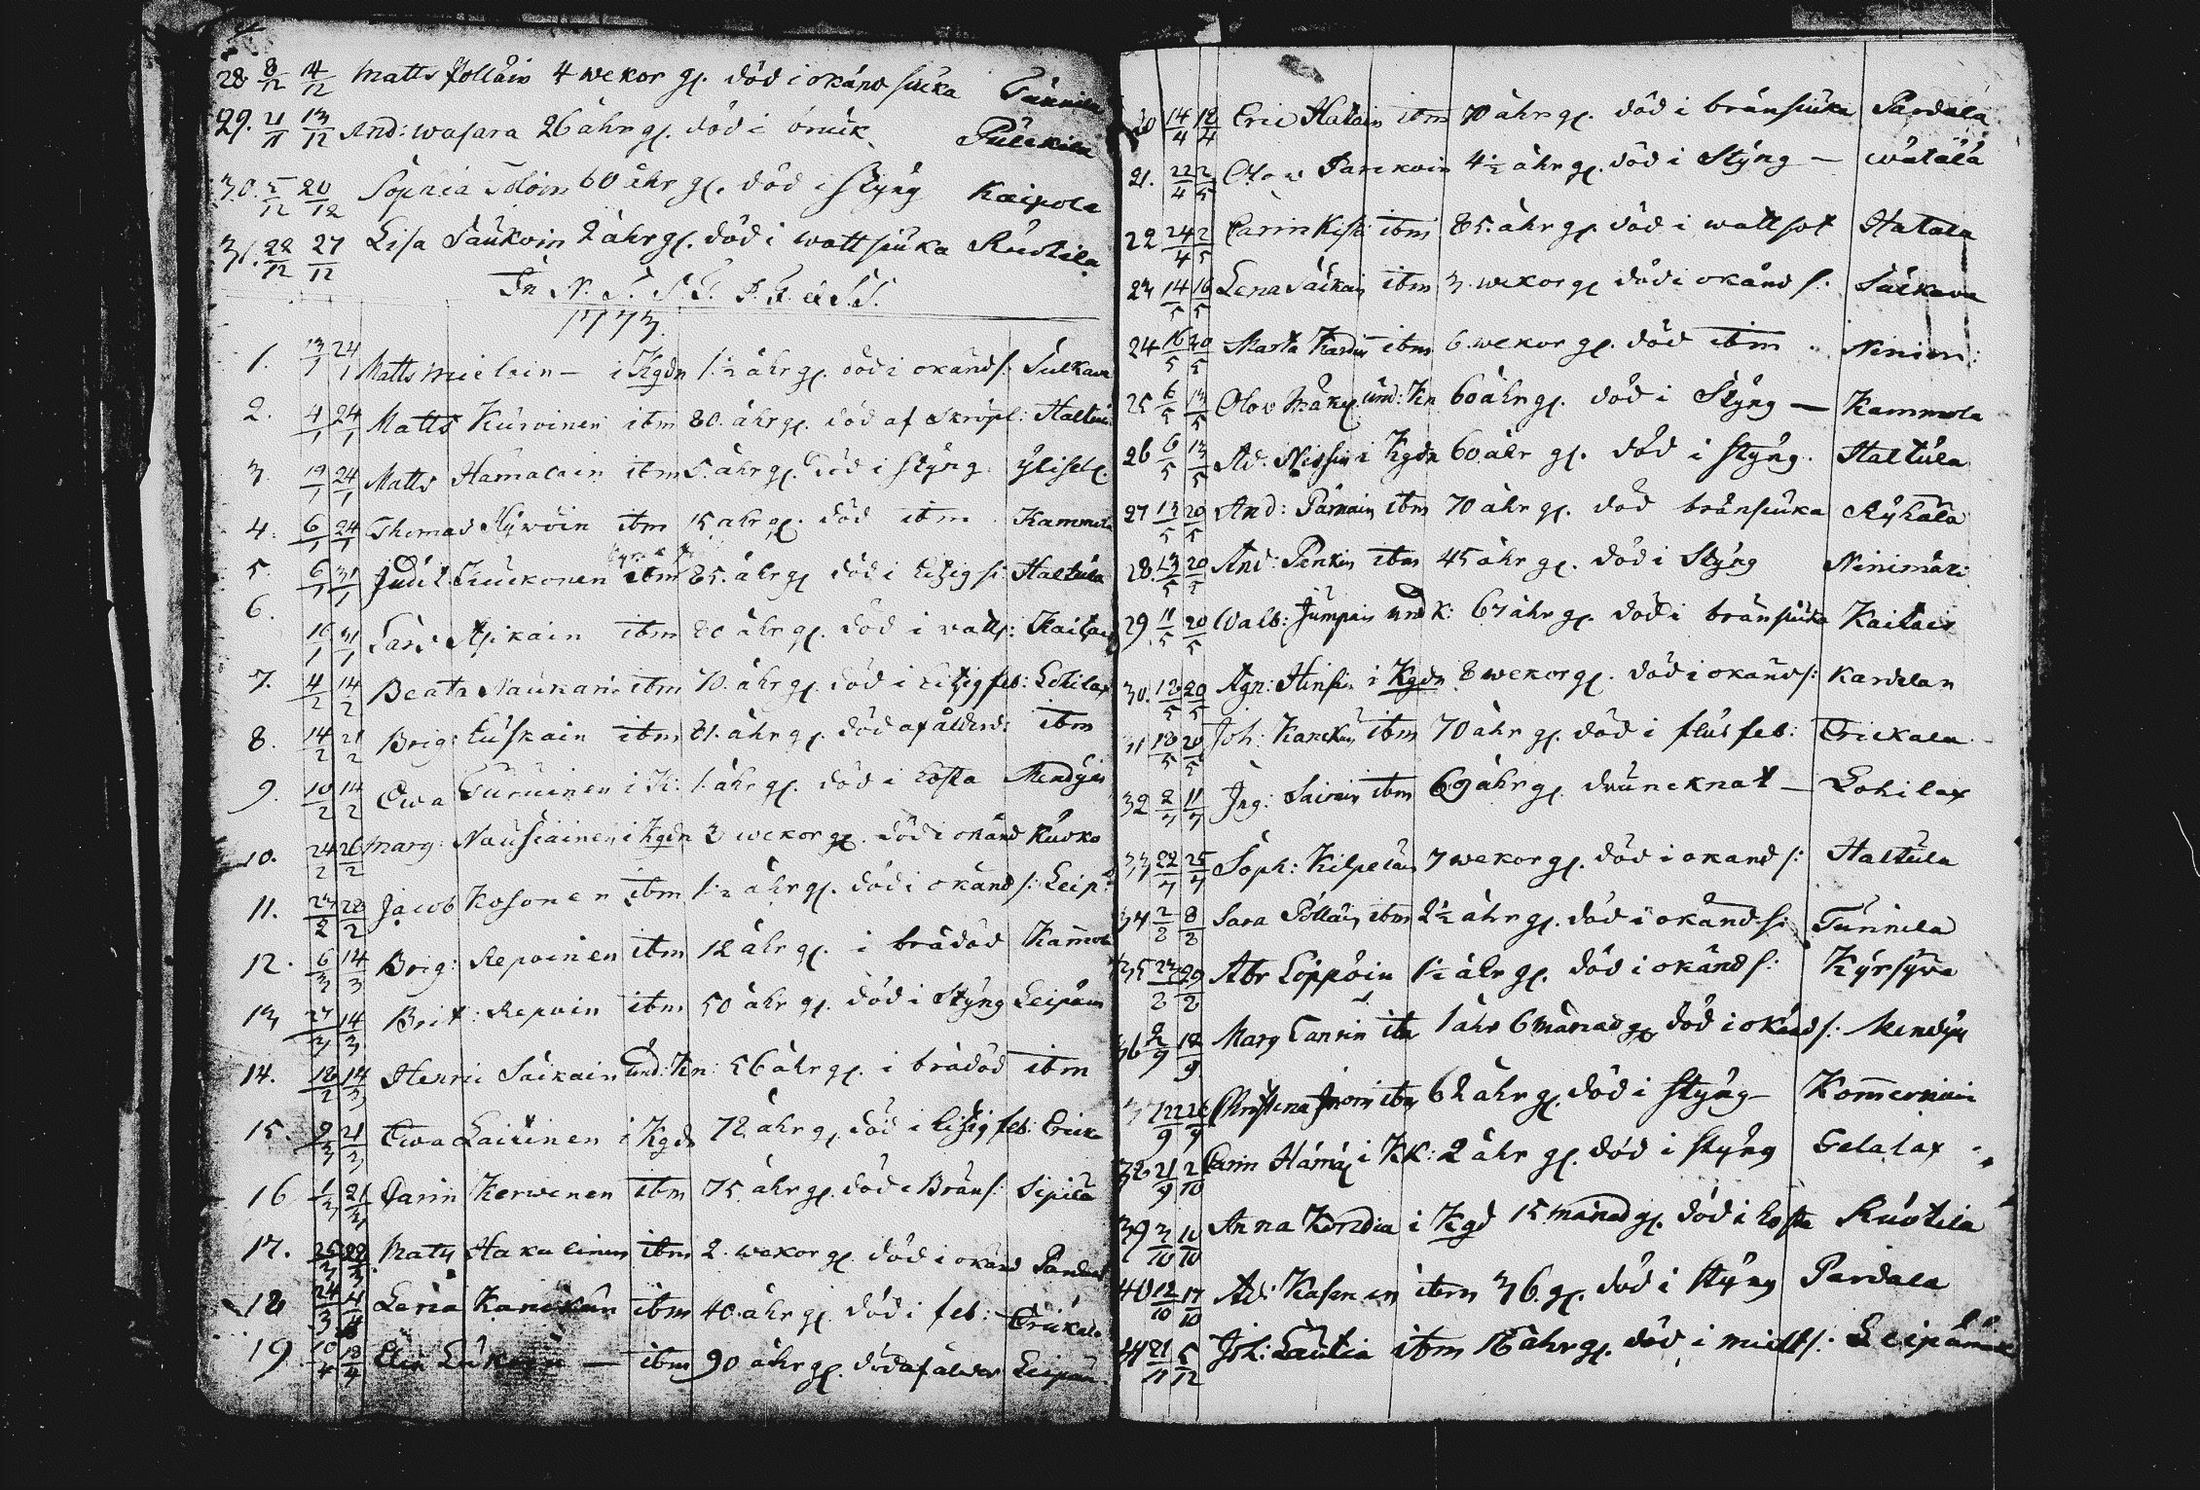 28 8/12 14/12 Matts Polläin 4 wekor gl. död i okänd siuka Tünnila
29. 21/11 13/12 And: wasara 26 åhr gl. död i Pülckila
30. 5/12 20/12 Sophia 60 åhr gl. död i styng Kaipola
31. 22/12 27/12 Lisa Saükoin 2 åhr gl. död i watt siuka Rüotila
1773.
1. 13/1 24/1 Matts Mielain – i Kgdn 1 1/2 åhr gl. död i okänd s: Sulkava
2. 4/1 24/1 Matts Kürvinen ibm 80. åhr gl. död af Skröpl: Haltü
3. 19/1 24/1 Matts Hämäläin ibm 5. åhr gl. död i styng.
4. 6/1 24/1 Thomas Hÿwöin ibm 15 åhr gl. död ibm Kammola
5. 6/1 31/1 Judit ibm 85. åhr gl. död i hitzig s: Haltüla
6. 16/1 31/1 Lars ibm 80 åhr gl. död i watts: Kaitais
7. 4/2 14/2 Beata Naükari ibm 70. åhr gl. död i hitzig feb: Lohilax
8. 14/2 21/2 Brig: ibm 81. åhr gl. död af ålderd: ibm
9. 10/2 14/2 Ewa i K: 1. åhr gl. död i hosta Mendÿs
10. 24/2 26/2 Marg: Naüsiainen i Kgdn 3 wekor gl. död i okänd Kürko
11. 23/2 28/2 Jacob Kosonen ibm 1 1/2 åhr gl. död i okänd s: Leip:
12. 6/3 14/3 Brig: Repoinen ibm 12 åhr gl. i brådöd Kam̄ola
13 27/3 14/3 Brit: Repoin ibm 50 åhr gl. död i Styng Leipäm
14. 18/2 14/3 Henric Säikäin und: Kn: 56 åhr gl. i brådöd ibm
15. 9/3 21/3 Ewa Laitinen i Kgd 72 åhr gl. död i hitzig feb: Erick
16 1/3 21/3 Carin Kerwenen ibm 75. åhr gl. död i Bräns: Sipilä
17. 25/3 29/3 Mats Hakulinen ibm 2. wekor gl. död i okänd
18 24/3 4/4 Lena Kanckün ibm 40. åhr gl. död i feb: – Erickala
19 10/4 18/4 – ibm 90 åhr gl. död af ålder Leipäm.
20 14/4 18/4 Eric Hatain ibm 70 åhr gl. död i bränsiuka Pardala
21. 22/4 2/5 Olov 4 1/2 åhr gl. död i Styng – Wätälä
22 24/4 2/5 Carin Kisk: ibm 85. åhr gl. död i wattsot Hatala
23 14/5 16/5 Lena Säikäin ibm 3. wekor gl. död i okänd s: Sälkava
24 16/5 20/5 Marta ibm 6. wekor gl. död ibm Ninim:
25 6/5 13/5 Olov und: Kn 60 åhr gl. död i Styng – Kammola
26 6/5 13/5 Ad: Nissin i Kgdn 60. åhr gl. död i styng. Haltüla
27 13/5 20/5 And: Pärnäin ibm 70 åhr gl. död bränsiuka Rÿhälä
28. 13/5 20/5 And: Penkin ibm 45 åhr gl. död i Styng Ninimäki
29 11/5 20/5 Walb: Jümpain und K: 67 åhr gl. död i bränsiuka Kaitais
30. 12/5 20/5 Agn: Hinsin i Kgdn 8 wekor gl. död i okänd s: Kardelan
31 18/5 20/5 Joh: Kanckün ibm 70 åhr gl. död i flus feb: Erickala
32 2/7 11/7 Jng: Sairain ibm 69 åhr gl. drüncknat – Lohilax
33 22/7 25/7 Soph: Kilpeläin 7 wekor gl. död i okand s: Haltüla
34 2/8 8/8 Sara Pölläin ibm 2 1/2 åhr gl. död i okänd s: Tünnila
35 23/8 29/8 Abr Loppöin 1 1/2 åhr gl. död i okänd s: Kÿrsÿvä
36 2/9 12/9 Marg Tannin ibm 1 åhr 6 månad gl död i okänd s: Mendÿs
37 22/9 26/9 Christina ibm 62 åhr gl. död i styng – Kom̄erniemi
38 21/9 2/10 Carin Hämäl i KK: 2 åhr gl. död i styng Telalax
39 3/10 10/10 Anna Koredia i Kgd 15 månad gl. död i hosta Rüotila
40 12/10 17/10 Ad: Kasanen ibm 36. gl. död i styng Pardala
41 21/11 5/12 Joh: Laütia ibm 16 åhr gl. död i mielts: Leipämäki